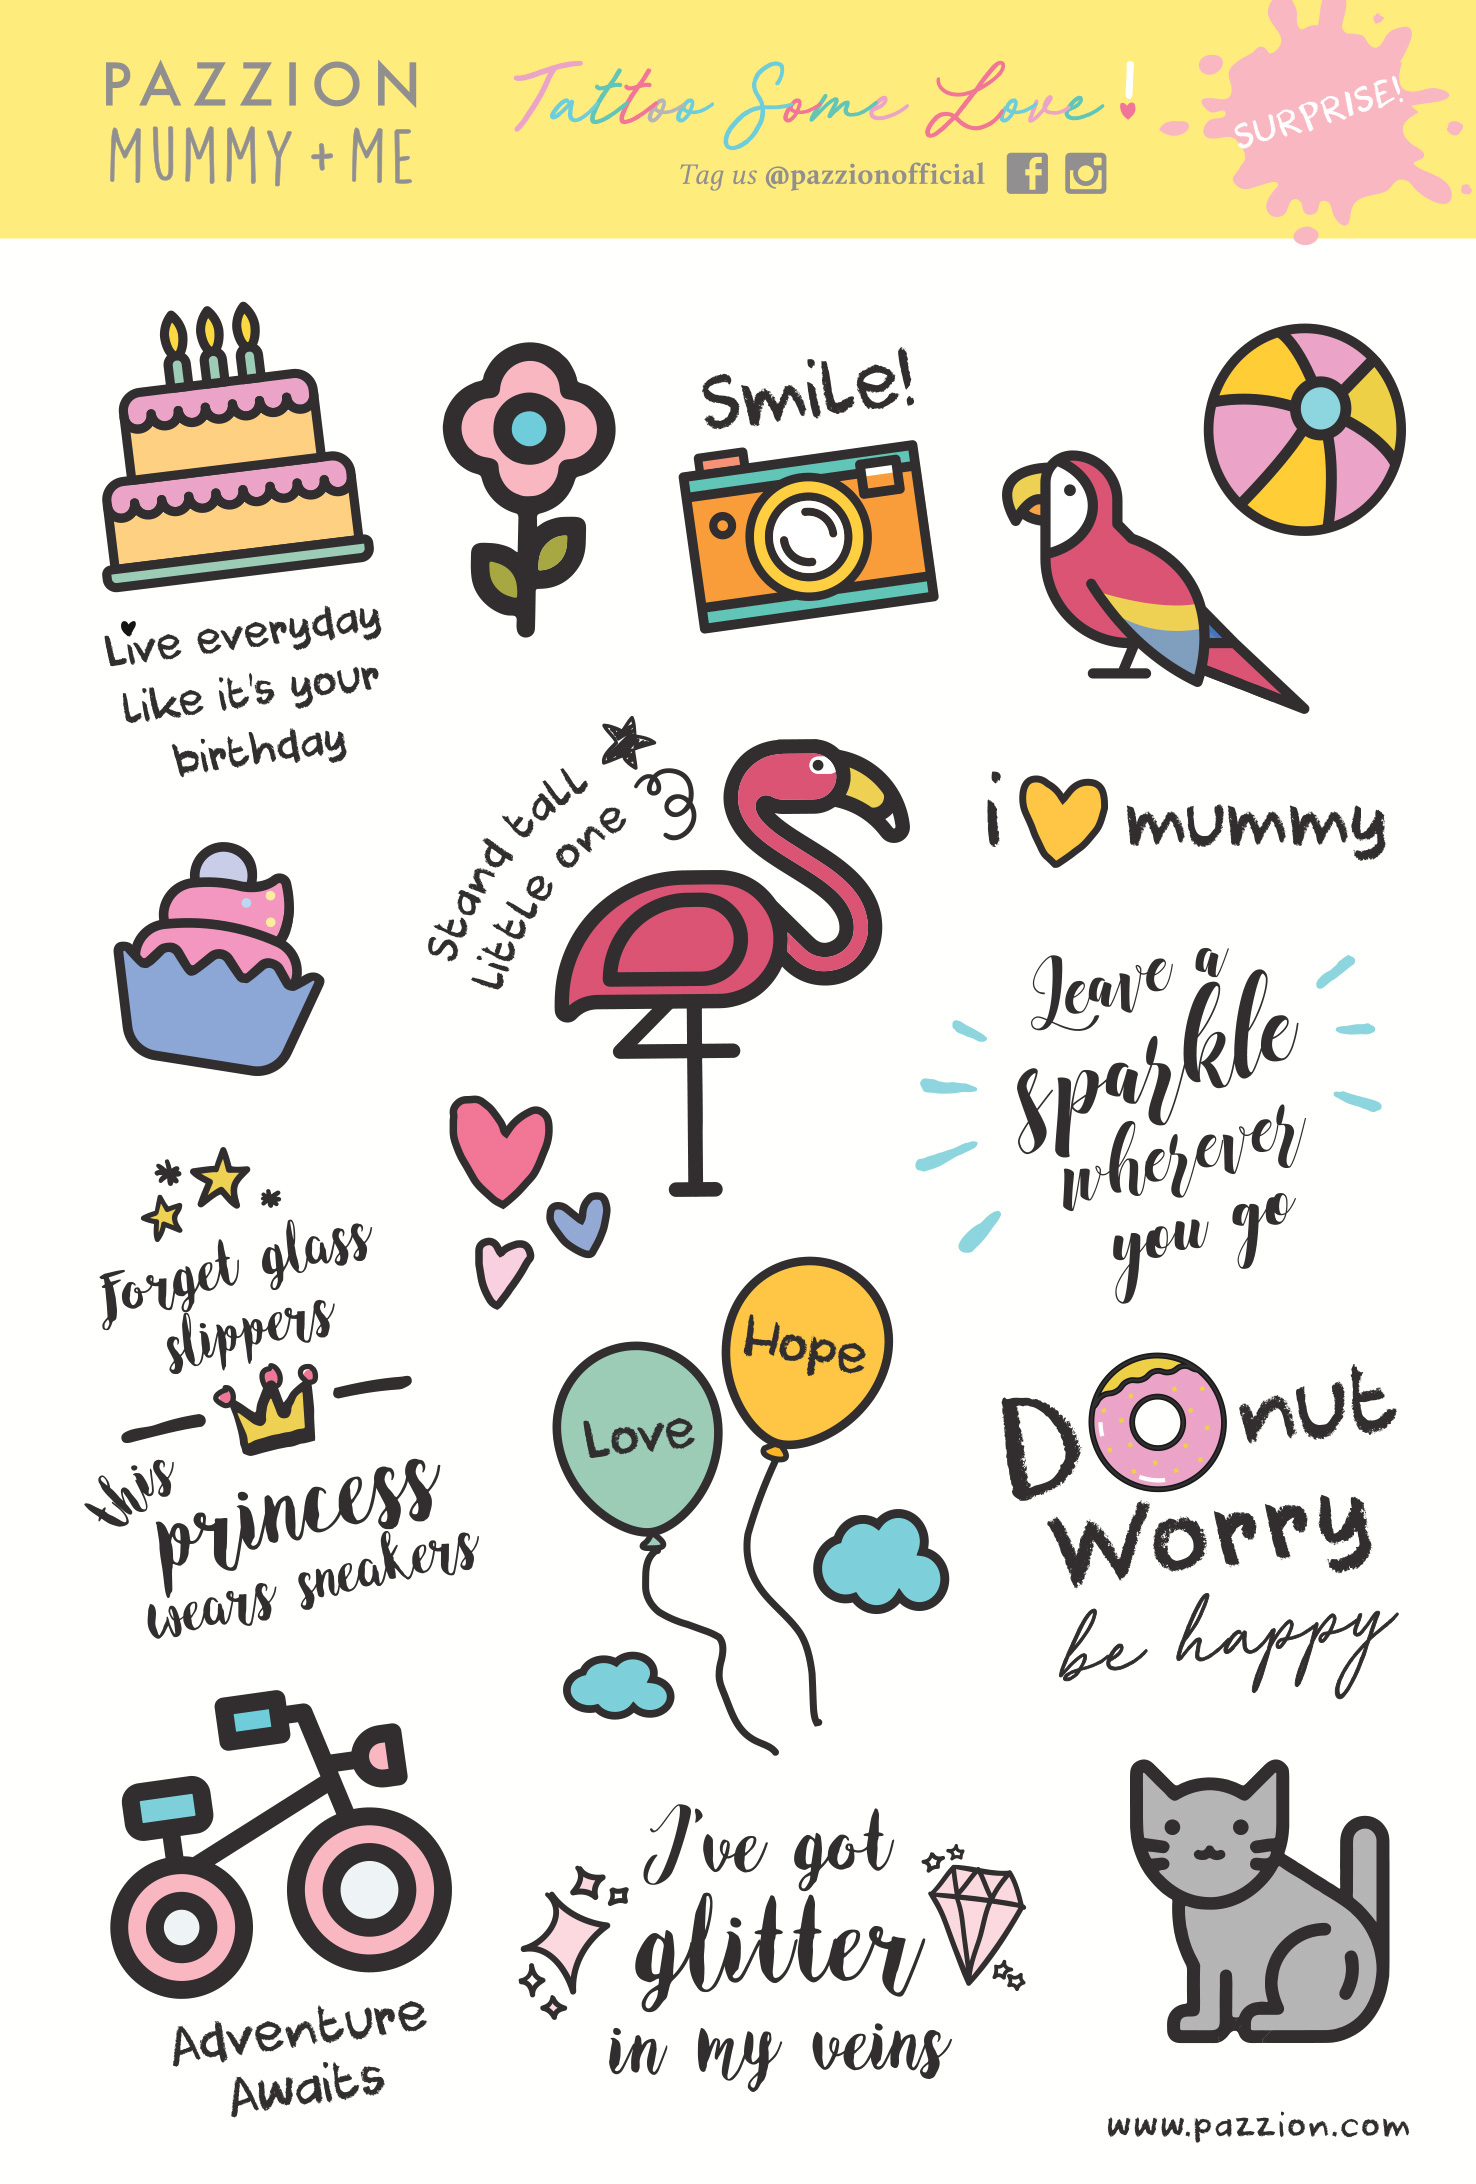 PAZZION
MUMMY + ME
Tattoo Some Love!
Tag us @pazzionofficial
SURPRISE!
Live everyday
Like it's your
birthday
Smile!
Stand tall
Little one
i mummy
Leave a
sparkle
wherever
you go
Forget glass
slippers
this
princess
wears sneakers
Love
Hope
Donut
Worry
be happy
Adventure
Awaits
I've got
glitter
in my veins
www.pazzion.com